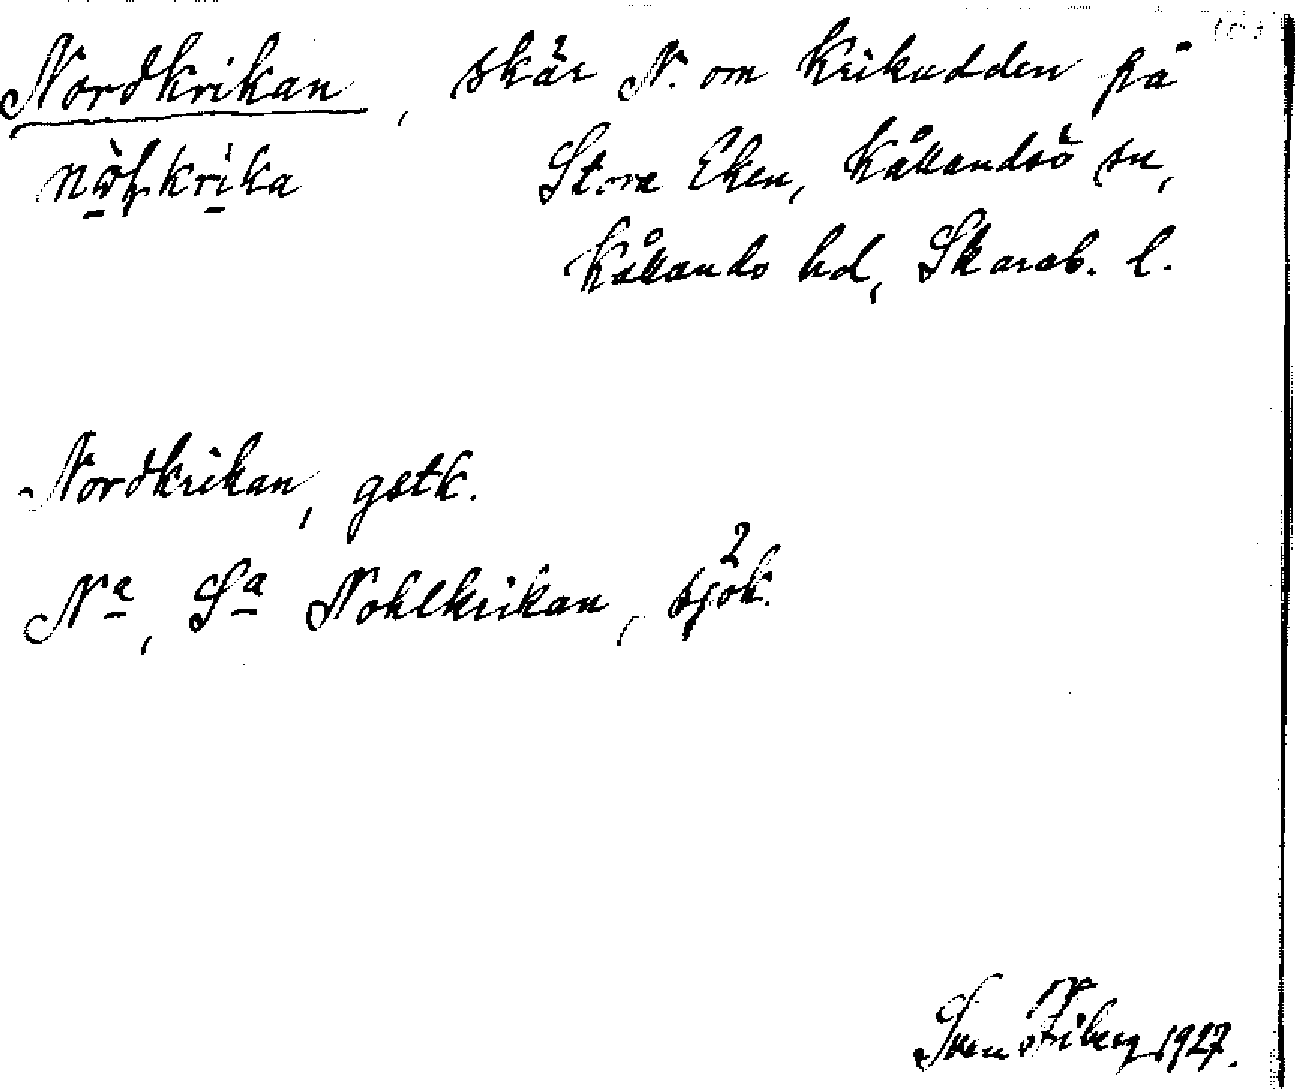 Nordkrikan, skär N. om Krikudden på
Stora Eken, Kållandsö sn,
Kållands hd, Skarab. l.
Nordkrikan, gstk.
Na, Sa Nohlkrikan, sjök. 2
Sven Fiberg 1927.